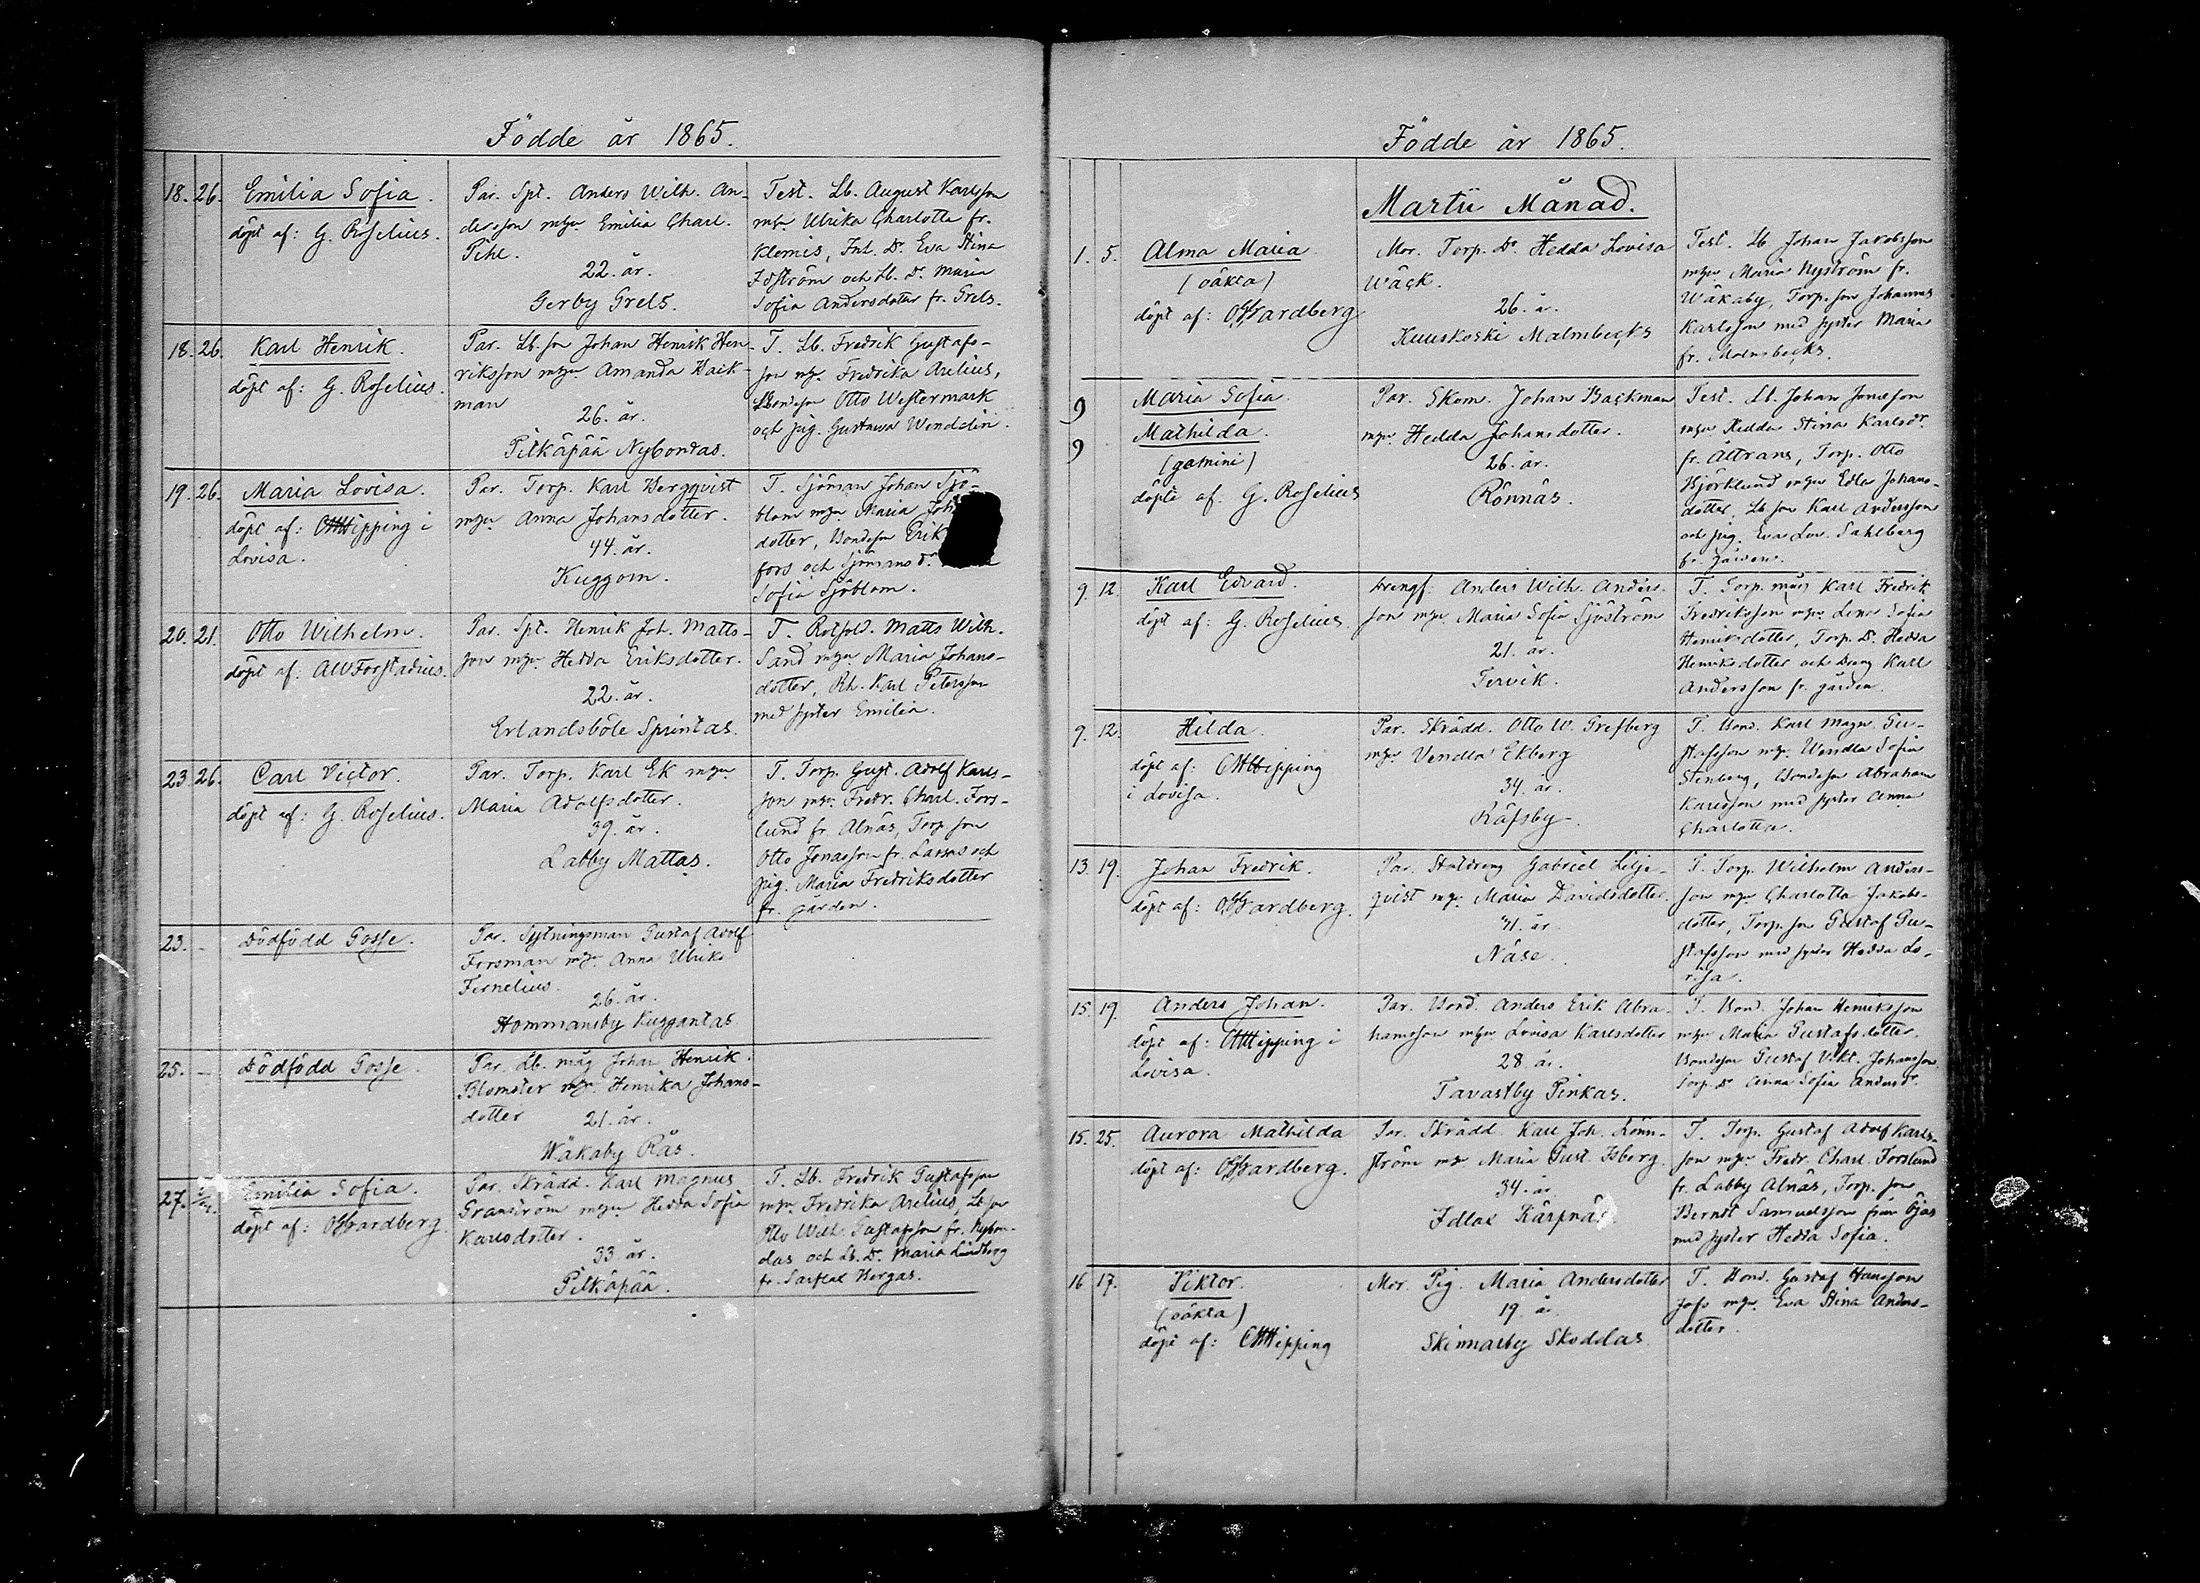 Födde år 1865.
18. 26. Emilia Sofia.
döpt af: G. Roselius.
Par. Spt. Anders Wilh. An-
dersson mhu Emilia Charl.
Pihl.
22. år.
Gerby Grels.
Test. Lb. August Karlsson
mhu Ulrika Charlotta fr.
Klemis, Inh. Dr. Eva Stina
Idström och Lb. Dr. Maria
Sofia Andersdotter fr. Grels.
18. 26. Karl Henrik.
döpt af: G. Roselius.
Par. Lb. son Johan Henrik Hen-
riksson mhu Amanda Back-
man
26. år.
Pitkäpää Nybondas.
T. Lb. Fredrik Gustafs-
son mhu Fredrika Arelius,
Bondeson Otto Westermark
och pig. Gustava Wendelin.
19. 26. Maria Lovisa.
döpt af: Hipping i
Lovisa.
Par. Torp. Karl Bergqvist
mhu Anna Johansdotter.
44. år.
Kuggom.
T. Sjöman Johan Sjö-
blom mhu Maria Joh
dotter, Bondeson Erik
fors och Sjömans dr.
Sofia Sjöblom.
20. 21. Otto Wilhelm.
döpt af: AW Forstadius.
Par. Spt. Henrik Joh. Matts-
son mhu Hedda Eriksdotter.
22. år.
Erlandsböle Sprintas.
T. Rothold. Matts Wilh.
Sand mhu Maria Johans-
dotter, Rh. Karl Petersson
med syster Emilia.
23. 26. Carl Victor.
döpt af: G. Roselius.
Par. Torp. Karl Ek mhu
Maria Adolfsdotter.
39. år.
Labby Mattas.
T. Torp. Gust. Adolf Karls-
son mhu Fredr. Charl. Fors-
lund fr. Alnäs, Torp. son
Otto Jonasson fr. Lassas och
pig. Maria Fredriksdotter
fr. gården.
23. - Dödfödd Gosse.
Par. Sytningsman Gustaf Adolf
Forsman mhu Anna Ulrika
Fernelius.
26. år.
Hommansby Kuggantas
25. - Dödfödd Gosse
Par. Lb. måg Johan Henrik
Blomster mhu Henrika Johans-
dotter 21. år.
Wäkaby Rås.
27. Emilia Sofia.
döpt af: Gardberg
Par. Skrädd. Karl Magnus
Granström mhu Hedda Sofia
Karlsdotter.
33 år.
Pitkäpää.
T. Lb. Fredrik Gustafsson
mhu Fredrika Arelius, Lb. son
Otto Wilh. Gustafsson fr. Nybon-
das och Lb. Dr. Maria Lindberg
fr. Sarflax Borgas.
Födde år 1865.
Martii Månad.
1. 5. Alma Maria
(oäkta)
döpt af: Gardberg
Mor. Torp. Dr. Hedda Lovisa
Wäck.
26. år.
Kuuskoski Malmbecks
Test. Lb Johan Jakobsson
mhu Maria Nyström fr.
Wäkaby, Torp. son Johannes
Karlsson med syster Maria
fr. Malmbecks.
9 Maria Sofia.
9 Mathilda.
(gemini)
döpte af: G. Roselius
Par. Skom. Johan Backman
mhu Hedda Johansdotter.
26. år.
Rönnäs.
Test. Lb. Johan Jonasson
mhu Hedda Stina Karlsdr.
fr. Ättrans, Torp. Otto
Björklund mhu Edla Johans-
dotter, Lb. son Karl Andersson
och pig. Eva Lov. Sahlberg
fr. gården.
9. 12. Karl Edvard.
döpt af: G. Roselius.
Anders Wilh. Anders-
son mhu Maria Sofia Sjöström
21. år.
Tervik.
T. Torp. måg Karl Fredrik
Fredriksson mhu Lena Sofia
Henriksdotter, Torp. Dr. Hedda
Henriksdotter och Dreng Karl
Andersson fr. gården.
9. 12. Hilda.
döpt af: Hipping
i Lovisa.
Par. Skrädd. Otto W. Grefberg
mhu Vendla Ekberg
34. år.
Räfsby.
T. Bond. Karl Magn. Gu-
stafsson mhu Wendla Sofia
Stenberg, Bondeson Abraham
Karlsson med syster Anna
Charlotta.
13. 19. Johan Fredrik.
döpt af: Gardberg.
Par. Staldreng Gabriel Lilje-
qvist mhu Maria Davidsdotter.
41. år.
Näse.
T. Torp. Wilhelm Anders-
son mhu Charlotta Jakobs-
dotter, Torp. son Gustaf Gu-
stafsson med syster Hedda Lo-
visa.
15. 19. Anders Johan.
döpt af: Hipping i
Lovisa.
Par. Bond. Anders Erik Abra-
hamsson mhu Lovisa Karlsdotter
28. år.
Tavastby Pinkas.
T. Bond. Johan Henriksson
mhu Maria Gustafsdotter.
Bondeson Gustaf Vikt. Johansson
Torp. Dr Anna Sofia Andersdr.
15. 25. Aurora Mathilda
döpt af: Gardberg.
Par. Skrädd. Karl Joh. Lönn-
ström mhu Maria Gust. Isberg.
34. år.
Idlax Kärpnäs
T. Torp. Gustaf Adolf Karls-
son mhu Fredr. Charl. Forslund
fr. Labby Alnäs, Torp. son
Berndt Samuelsson från Öjas
med syster Hedda Sofia.
16 17. Viktor.
(oäkta)
döpt af: Hipping
Mor. Pig. Maria Andersdotter
19. år
Skinnarby Skoddas
T. Bond. Gustaf Hansson
mhu Eva Stina Anders-
dotter.